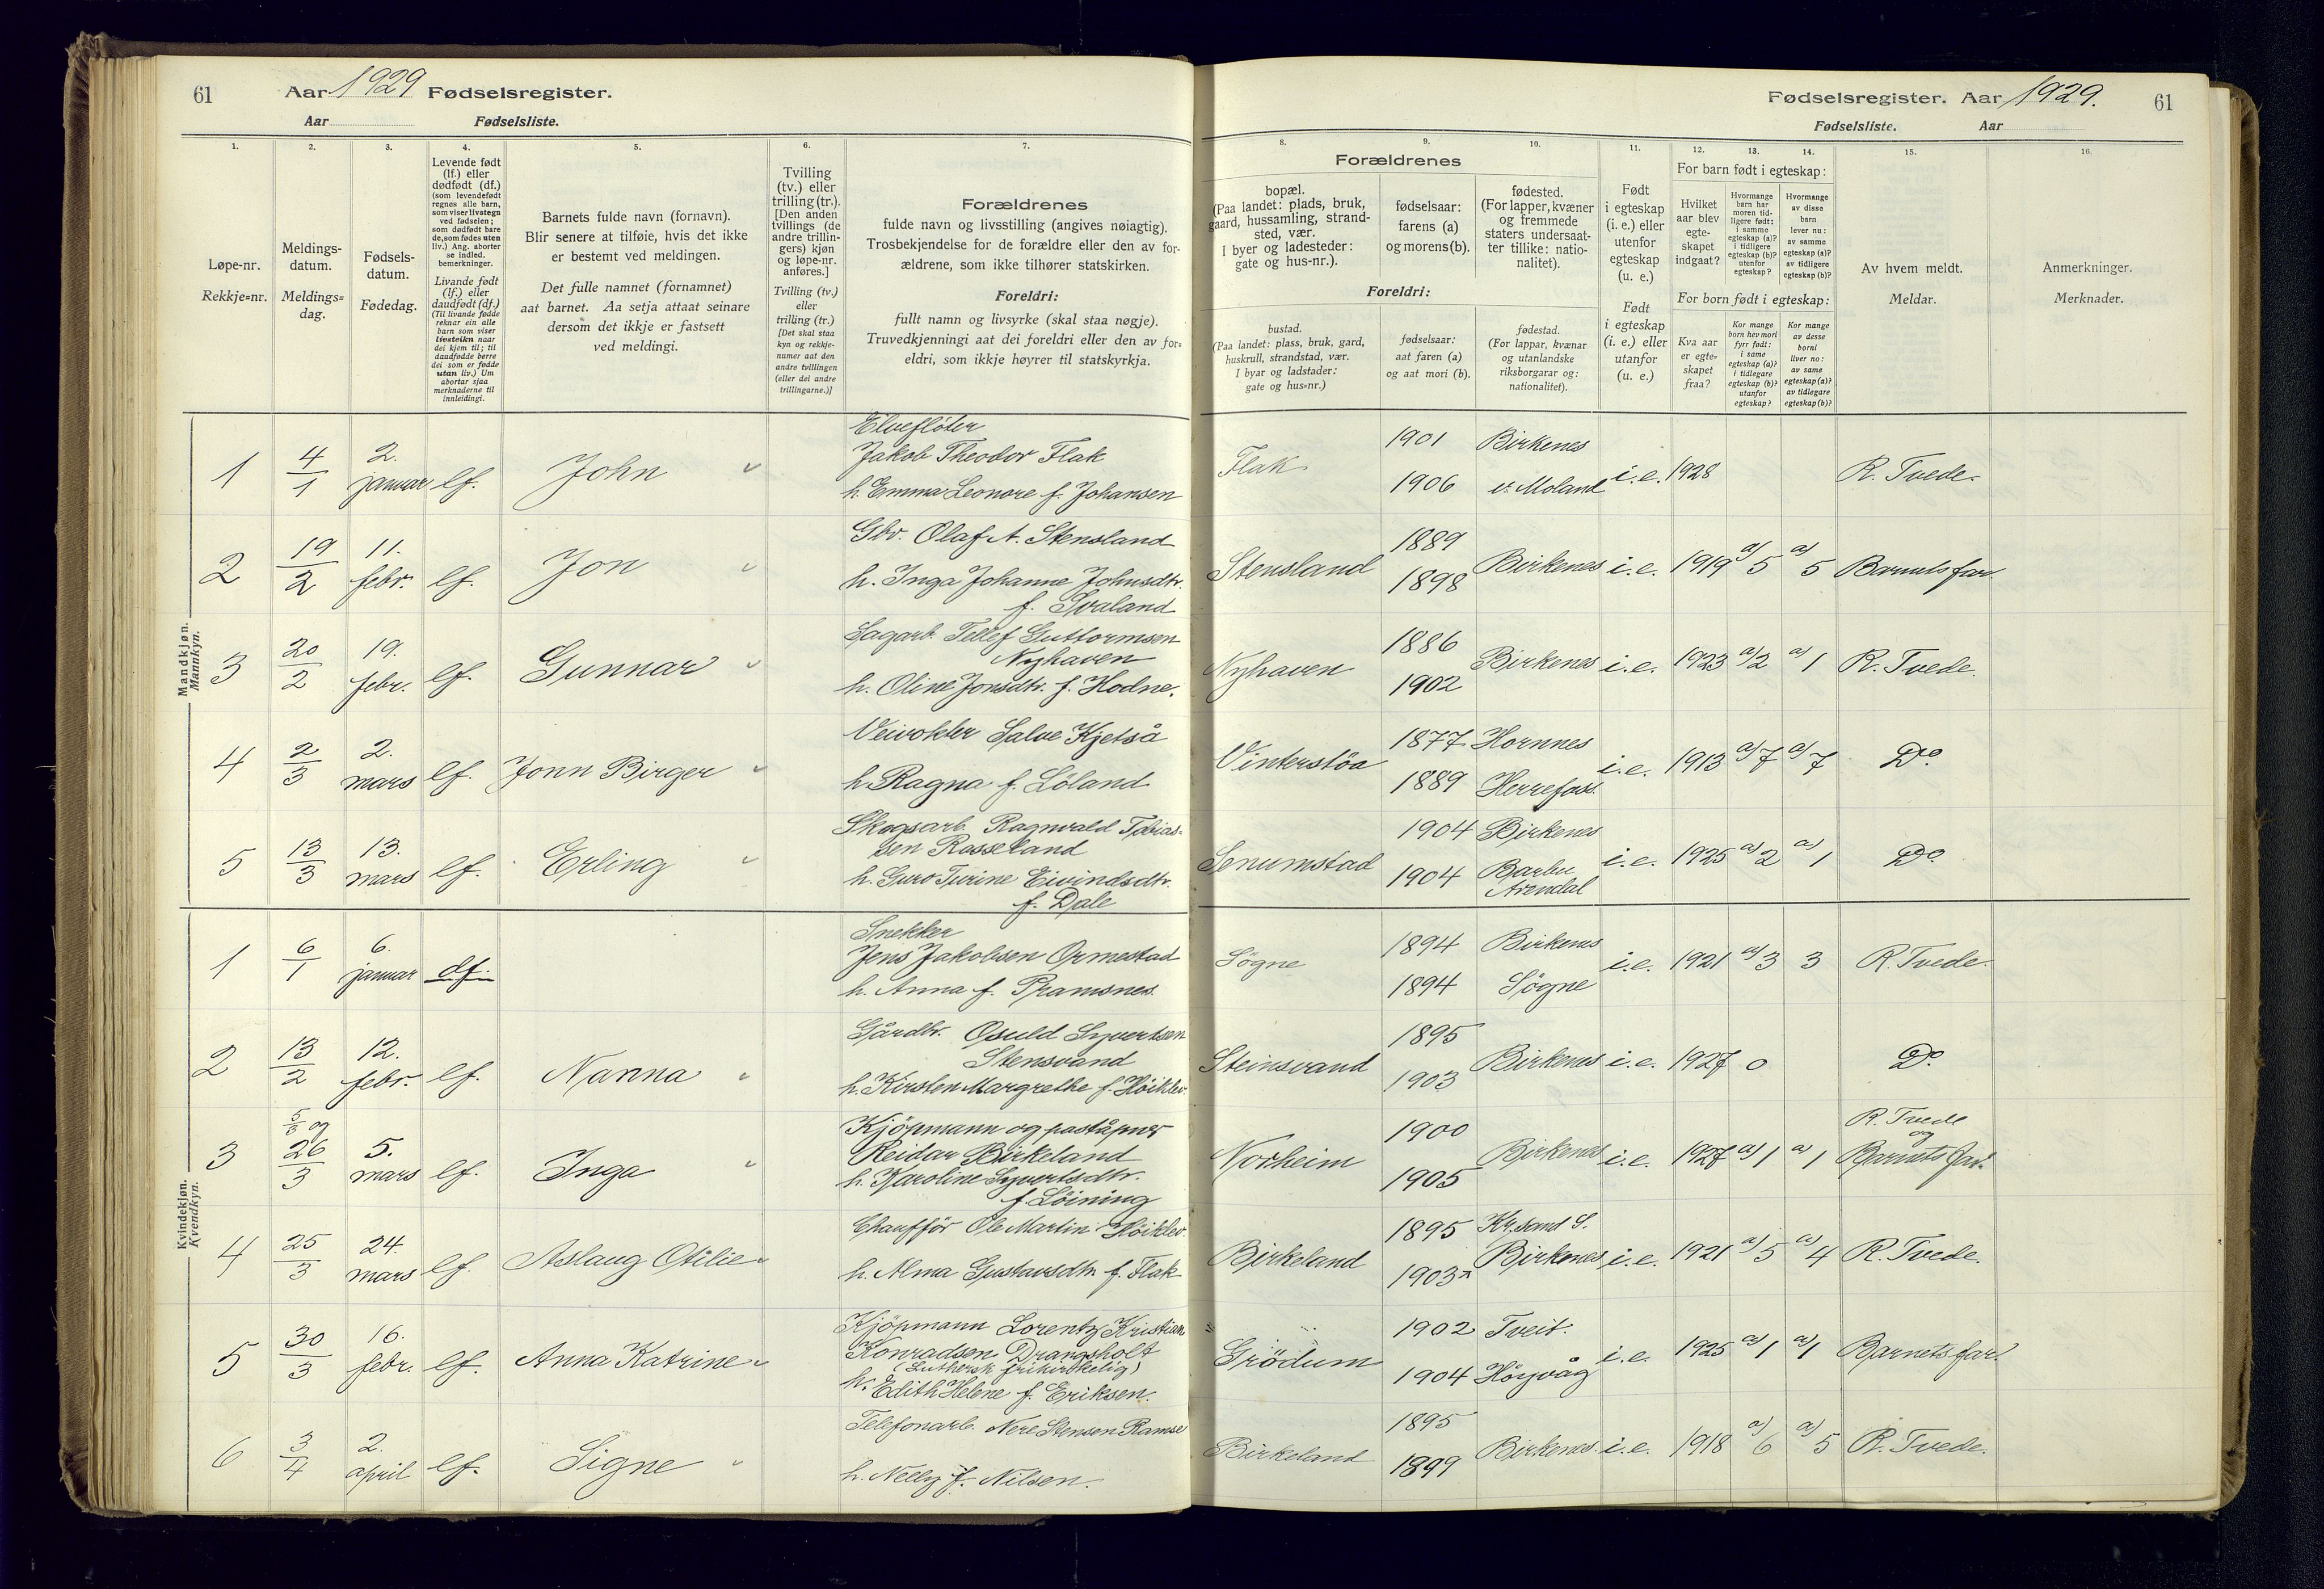 61
Aar 1929 Fødselsregister.
Aar Fødselsliste.
1.
Løpe-nr.
Rekkje=nr.
2.
Meldings-
datum.
Meldings=
dag.
3.
Fødsels-
datum.
Fødedag.
4.
Levende født
(lf.) eller
dødfødt (df.)
(som levendefødt
regnes alle barn,
som viser livstegn
ved fødselen;
som dødfødt bare
de, som fødes uten
liv.) Ang. aborter
se indled.
bemerkninger.
Livande født
(lf.) eller
daudfødt (df.)
(Til livande fødde
reknar ein alle
barn som viser
livsteikn naar
dei kjem til; til
daudfødde berre
dei som er fødde
utan liv.) Um
abortar sjaa
merknaderne til
innleidingi.
5.
Barnets fulde navn (fornavn).
Blir senere at tilføie, hvis det ikke
er bestemt ved meldingen.
Det fulle namnet (fornamnet)
aat barnet. Aa setja attaat seinare
dersom det ikkje er fastsett
ved meldingi.
6.
Tvilling
(tv.) eller
trilling (tr.).
[Den anden
tvillings (de
andre trillin-
gers) kjøn
og løpe-nr.
anføres.]
Tvilling (tv.)
eller
trilling (tr.)
[Det skal staa
kyn og rekkje-
numer aat den
andre tvillingen
(eller dei andre
trillingarne.)]
7.
Forældrenes
fulde navn og livsstilling (angives nøiagtig).
Trosbekjendelse for de forældre eller den av for-
ældrene, som ikke tilhører statskirken.
Foreldri:
fullt namn og livsyrke (skal staa nøgje).
Truvedkjenningi aat dei foreldri eller den av for=
eldri, som ikkje høyrer til statskyrkja.
Mandkjøn.
Mannkyn.
1 4/1 2. januar lf. John
Elvefløter
Jakob Theodor Flak
h. Emma Leonore f. Johansen
2 19/2 11. febr. lf. Jon
Gbr. Olaf A. Stensland
h. Inga Johanne Johnsdtr.
f. Svaland
3 20/2 19. febr. lf. Gunnar
Sagarb. Tellef Guttormsen
Nyhaven
h. Oline Jonsdtr. f. Hodne.
4 2/3 2. mars lf. Jonn Birger
Veivokter Salve Kjetså
h. Ragna f. Löland
5 13/3 13. mars lf. Erling
Skogsarb. Ragnvald Tobias-
sen Rosseland
h. Guro Turine Eivindsdtr.
f. Dale
Kvindekjøn.
Kvendkyn.
1 6/1 6. januar df.
Snekker
Jens Jakobsen Ormestad
h. Anna f. Pramsnes.
2 13/2 12. febr. lf. Nanna
Gårdbr. Osuld Syvertsen
Stensvand
h. Kirsten Margrethe f. Höiklev.
3 5/3 og 26/3 5. mars lf. Inga
Kjöpmann og poståpner
Reidar Birkeland
h. Karoline Syvertsdtr.
f. Löining
4 25/3 24. mars lf. Aslaug Otilie
Chaufför Ole Martin Höiklev.
h. Alma Gustavsdtr. f. Flak
5 30/3 16. febr. lf. Anna Katrine
Kjöpmann Lorentz Kristian
Konradsen Drangsholt
(Luthersk frikirkelig)
h. Edith Helene f. Eriksen.
6 3/4 2. april lf. Signe
Telefonarb. Nere Stensen Ramse
h. Nelly f. Nilsen.
Fødselsregister. Aar 1929. 61
Fødselsliste. Aar
8.
Forældrenes
bopæl.
(Paa landet: plads, bruk,
gaard, hussamling, strand-
sted, vær.
I byer og ladesteder:
gate og hus-nr.).
Foreldri:
bustad.
(Paa landet: plass, bruk, gard,
huskrull, strandstad, vær.
I byar og ladstader:
gate og hus=nr.)
9.
fødselsaar:
farens (a)
og morens (b).
fødselsaar:
aat faren (a)
og aat mori (b).
10.
fødested.
(For lapper, kvæner
og fremmede
staters undersaat-
ter tillike: natio-
nalitet).
fødestad.
(For lappar, kvænar
og utanlandske
riksborgarar og:
nationalitet).
11.
Født
i egteskap
(i. e.) eller
utenfor
egteskap
(u. e.)
Født
i egteskap
(i. e.) eller
utanfor
(u. e.)
12. 13. 14.
For barn født i egteskap:
Hvilket
aar blev
egte-
skapet
indgaat?
Hvormange
barn har
moren tid-
ligere født:
i samme
egteskap (a)?
i tidligere
egteskap (b)?
utenfor
egteskap?
Hvormange
av disse
barn
lever nu:
av samme
egteskap (a)?
av tidligere
egteskap (b)?
For born født i egteskap:
Kva aar
er egte=
skapet
fraa?
Kor mange
born hev mori
fyrr født:
i same
egteskap (a)?
i tidlegare
egteskap (b)?
utanfor
egteskap?
Kor mange
av desse
borni
liver no:
av same
egteskap (a)?
av tidlegare
egteskap (b)?
15.
Av hvem meldt.
Meldar.
16.
Anmerkninger.
Merknader.
Flak 1901 1906 Birkenes ø. Moland i.e. 1928 R. Tvede.
Stensland 1889 1898 Birkenes i.e. 1919 a) 5 a) 5 Barnets far.
Nyhaven 1886 1902 Birkenes i.e. 1923 a) 2 a) 1 R. Tvede.
Vinterstöa 1877 1889 Hornnes Herrefoss. i.e. 1913 a) 7 a) 7 Do
Senumstad 1904 1904 Birkenes Barbu Arendal i.e. 1925 a) 2 a) 1 Do
Sögne 1894 1894 Birkenes Sögne i.e. 1921 a) 3 3 R. Tvede.
Steinsvand 1895 1903 Birkenes i.e. 1927 0 Do
Norheim 1900 1905 Birkenes i.e. 1927 a) 1 a) 1 R. Tvede og Barnets far.
Birkeland 1895 1903 Kr.sand S. Birkenes i.e. 1921 a) 5 a) 4 R. Tvede.
Grödum 1902 1904 Tveit. Höyvåg i.e. 1925 a) 1 a) 1 Barnets far.
Birkeland 1895 1899 Birkenes. i.e. 1918 a) 6 a) 5 R. Tvede.